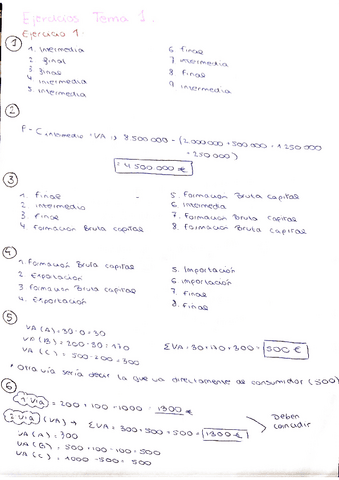 Ejercicios Tema 1.
Ejercicio 1:
①
1. Intermedia
2 final
3 final
4 intermedia
5 intermedia
6 final
7 intermedia
8 final
9. intermedia
②
F - C intermedio = VA => 8 500 000 - (2 000 000 + 500 000 + 1 250 000
+ 250 000)
= 4 500 000 €
③
1. Final
2. intermedio
3. Final
4 Formacion Bruta capital
5 Formacion Bruta capital
6 Intermedia
7. Formacion Bruta capital
8. Formacion Bruta capital
④
1. Formacion Bruta capital
2 Exportacion
3 Formacion Bruta capital
4. Exportacion
5. Importacion
6. Importacion
7. Final
8. Final
⑤
VA (A) = 30 - 0 = 30
VA (B) = 200 - 30 = 170
VA (C) = 500 - 200 = 300
ΣVA = 30 + 170 + 300 = 500 €
* Otra via seria decir lo que va directamente al consumidor (500)
⑥
1 via = 200 + 100 + 1000 = 1300 €
2 via (VA) → ΣVA = 300 + 500 + 500 = 1300 €
Deben
coincidir
VA (A) = 300
VA (B) = 500 + 100 - 100 = 500
VA (C) = 1000 - 500 = 500